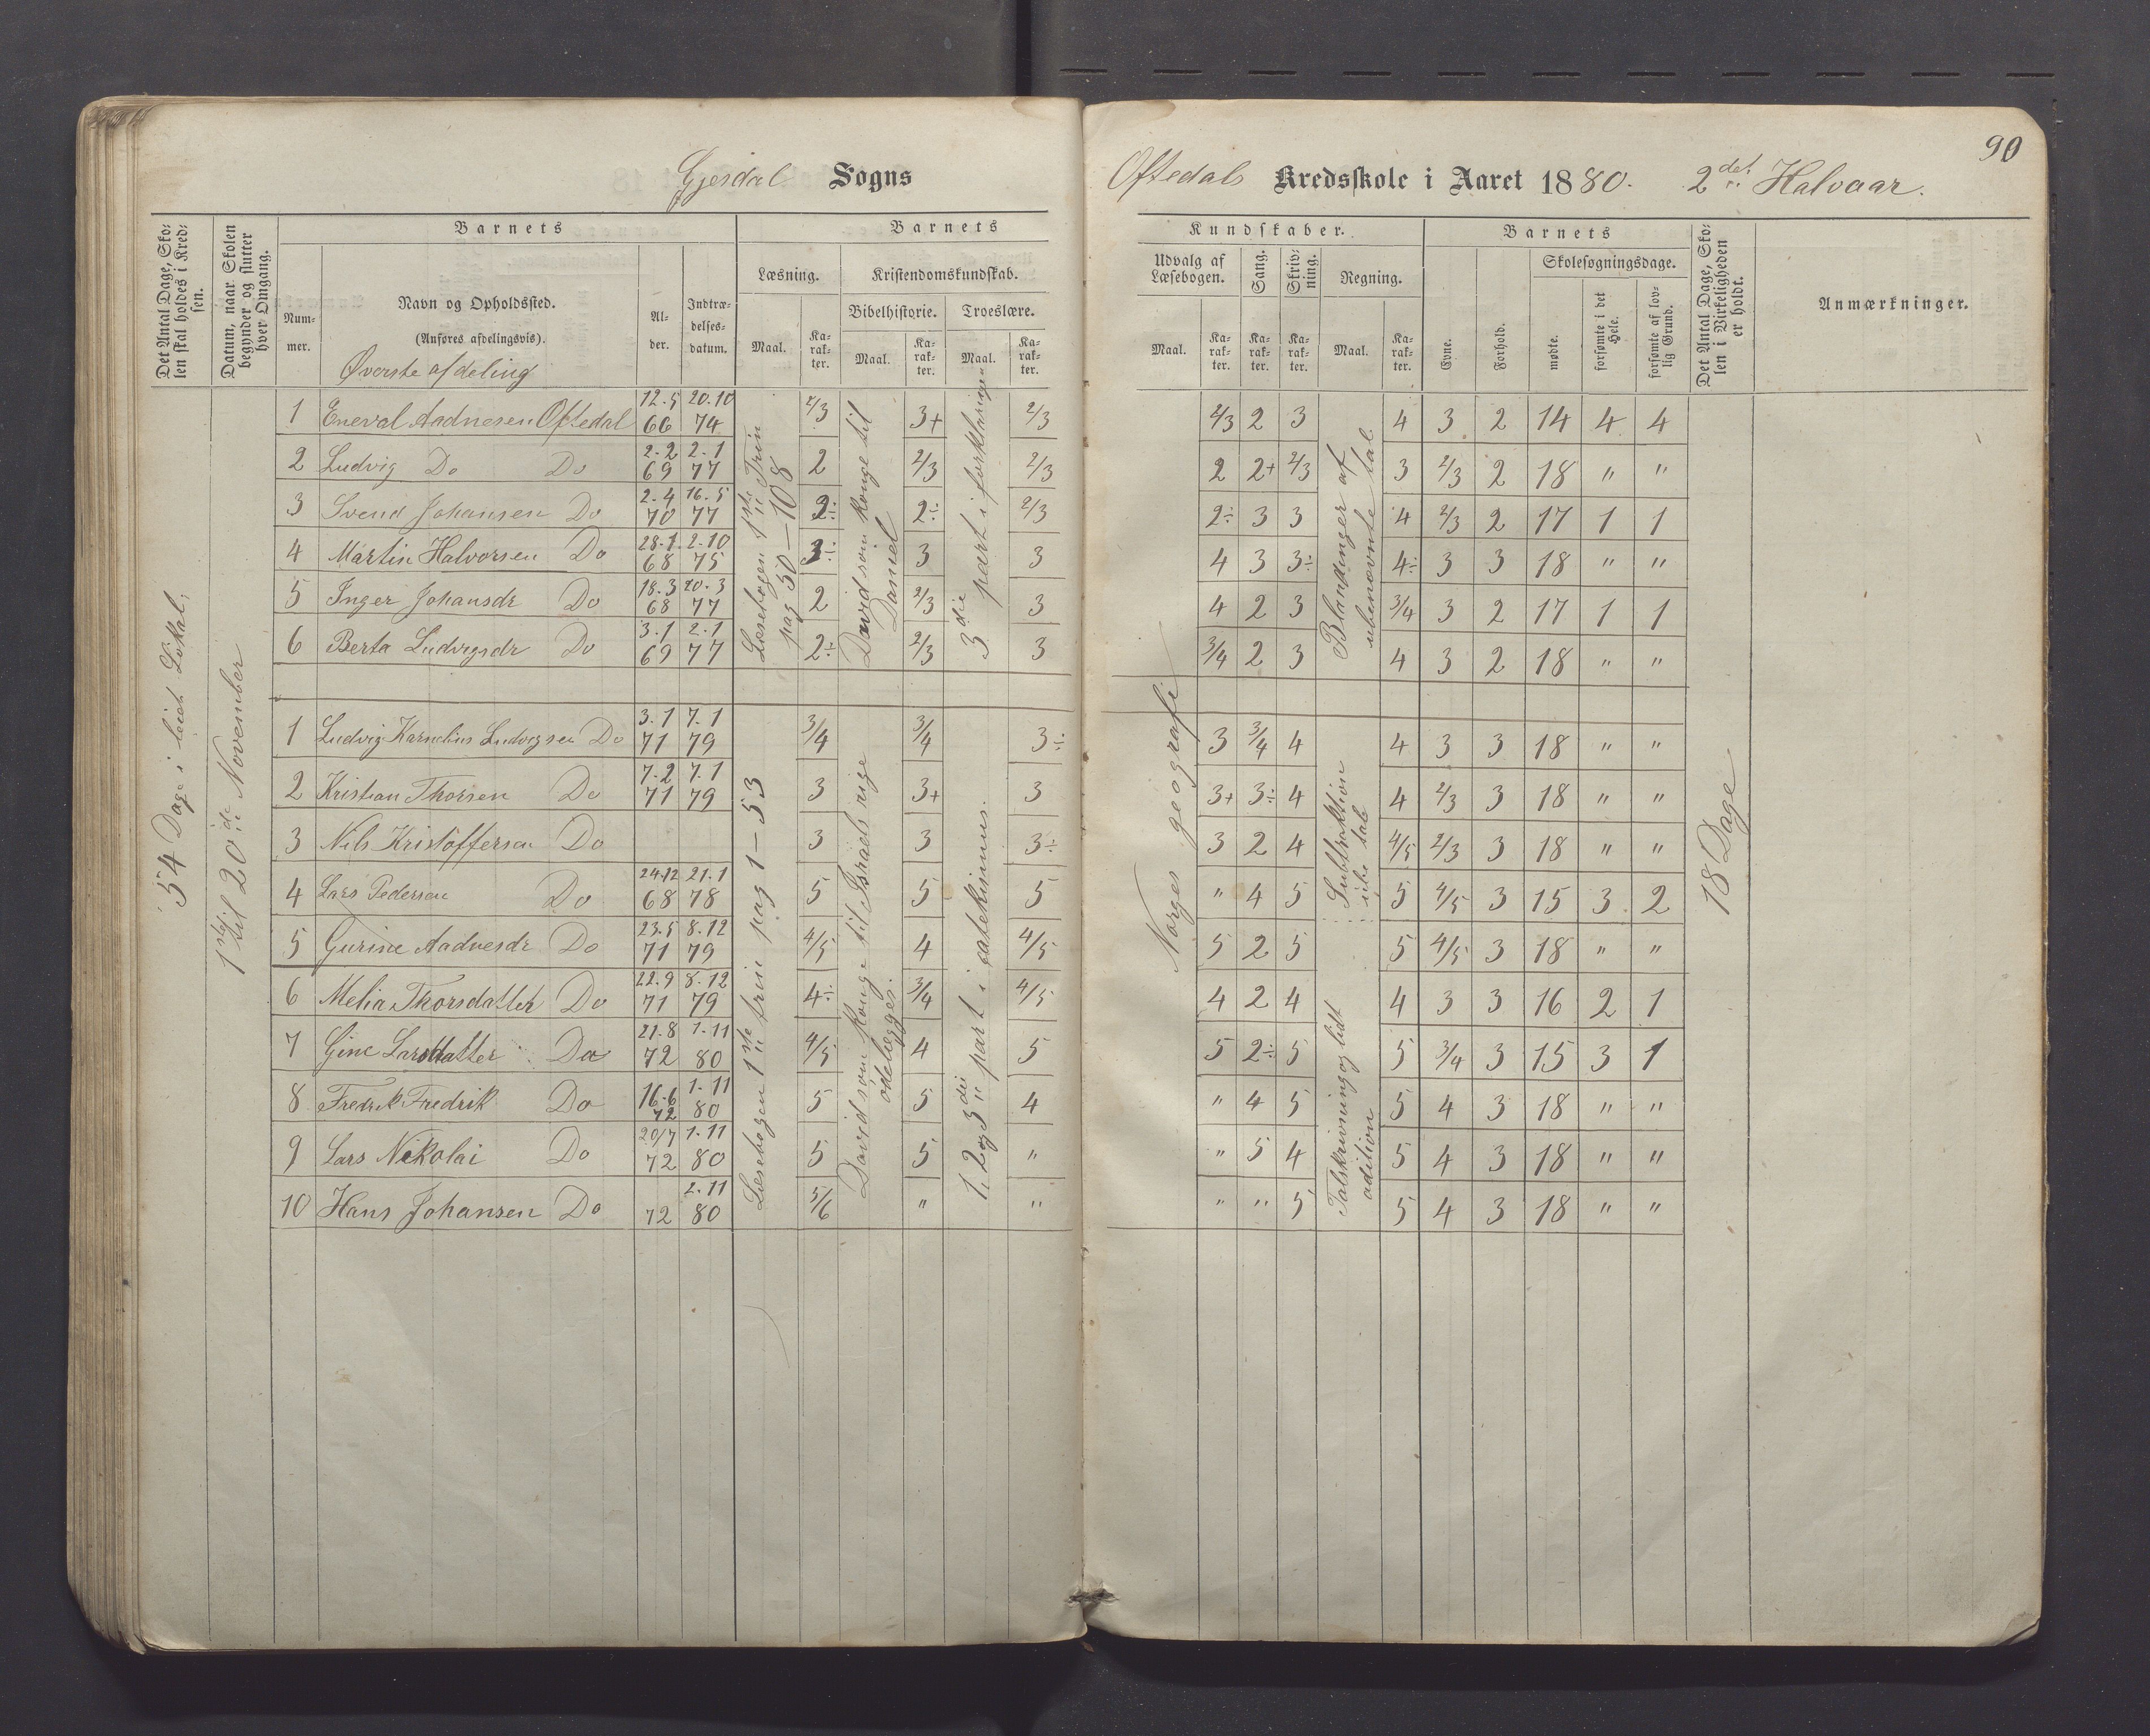 90
Gjesdal Sogns
Oftedals Kredsskole i Aaret 1880. 2det Halvaar.
Det Antal Dage, Skolen skal holdes i Kredsen.
Datum, naar Skolen begynder og slutter hver Omgang.
Barnets
Nummer.
Navn og Opholdssted.
(Anføres afdelingsvis).
Øverste afdeling
Alder.
Indtrædelsesdatum.
Barnets
Læsning.
Maal.
Karakter.
Kristendomskundskab.
Bibelhistorie.
Maal.
Karakter.
Troeslære.
Maal.
Karakter.
Kundskaber.
Udvalg af Læsebogen.
Maal.
Karakter.
Sang.
Karakter.
Skrivning.
Karakter.
Regning.
Maal.
Karakter.
Barnets
Evne.
Forhold.
Skolesøgningsdage.
mødte.
forsømte i det Hele.
forsømte af lovlig Grund.
Det Antal Dage, Skolen i Virkeligheden er holdt.
Anmærkninger.
54 Dage i leiet Lokal,
1ste til 20de November
1 Eneval Aadnesen Oftedal 12.5 66 20.10 74 2/3 3+ 2/3 2/3 2 3 4 3 2 14 4 4
2 Ludvig Do Do 2.2 69 2.1 77 2 2/3 2/3 2 2+ 2/3 3 2/3 2 18 " "
3 Svend Johansen Do 2.4 70 16.5 77 2÷ 2÷ 2/3 2÷ 3 3 4 2/3 2 17 1 1
4 Martin Halvorsen Do 28.1 68 2.10 75 3÷ 3 3 4 3 3÷ 4÷ 3 3 18 " "
5 Inger Johansdr Do 18.3 68 20.3 77 2 2/3 3 4 2 3 3/4 3 2 17 1 1
6 Berta Ludvigsdr Do 3.1 69 2.1 77 2÷ 2/3 3 3/4 2 3 4 3 2 18 " "
Læsebogen 1ste Trin
pag 50-108
David som konge til
Daniel
3die part i forklaringen
Blandinger af
ubenævnte tal
1 Ludvig Karnelius Ludvigsen Do 3.1 71 7.1 79 3/4 3/4 3÷ 3 3/4 4 4 3 3 18 " "
2 Kristian Thorsen Do 7.2 71 7.1 79 3 3+ 3 3+ 3÷ 4 4 2/3 3 18 " "
3 Nils Kristoffersen Do 3 3 3÷ 3 2 4 4/5 2/3 3 18 " "
4 Lars Pedersen Do 24.12 68 21.1 78 5 5 5 " 4 5 5 4/5 3 15 3 2
5 Gurine Aadnesdr Do 23.5 71 8.12 79 4/5 4 4/5 5 2 5 5 4/5 3 18 " "
6 Melia Thorsdatter Do 22.9 71 8.12 79 4÷ 3/4 4/5 4 2 4 4 3 3 16 2 1
7 Gine Larsdatter Do 21.8 72 1.11 80 4/5 4 5 5 2÷ 5 5 3/4 3 15 3 1
8 Fredrik Fredrik Do 16.6 72 1.11 80 5 5 4 " 4 5 5 4 3 18 " "
9 Lars Nikolai Do 20/7 72 1.11 80 5 5 " " 5 4 5 4 3 18 " "
10 Hans Johansen Do 72 2.11 80 5/6 " " " " 5 5 4 3 18 " "
Læsebogen 1ste trin pag 1-53
David som konge til Israels rige
ødelægges.
1, 2 og 3die part i catekismus.
Norges geografi
Subtraktion
Talskrivning og lidt
adition
18 Dage